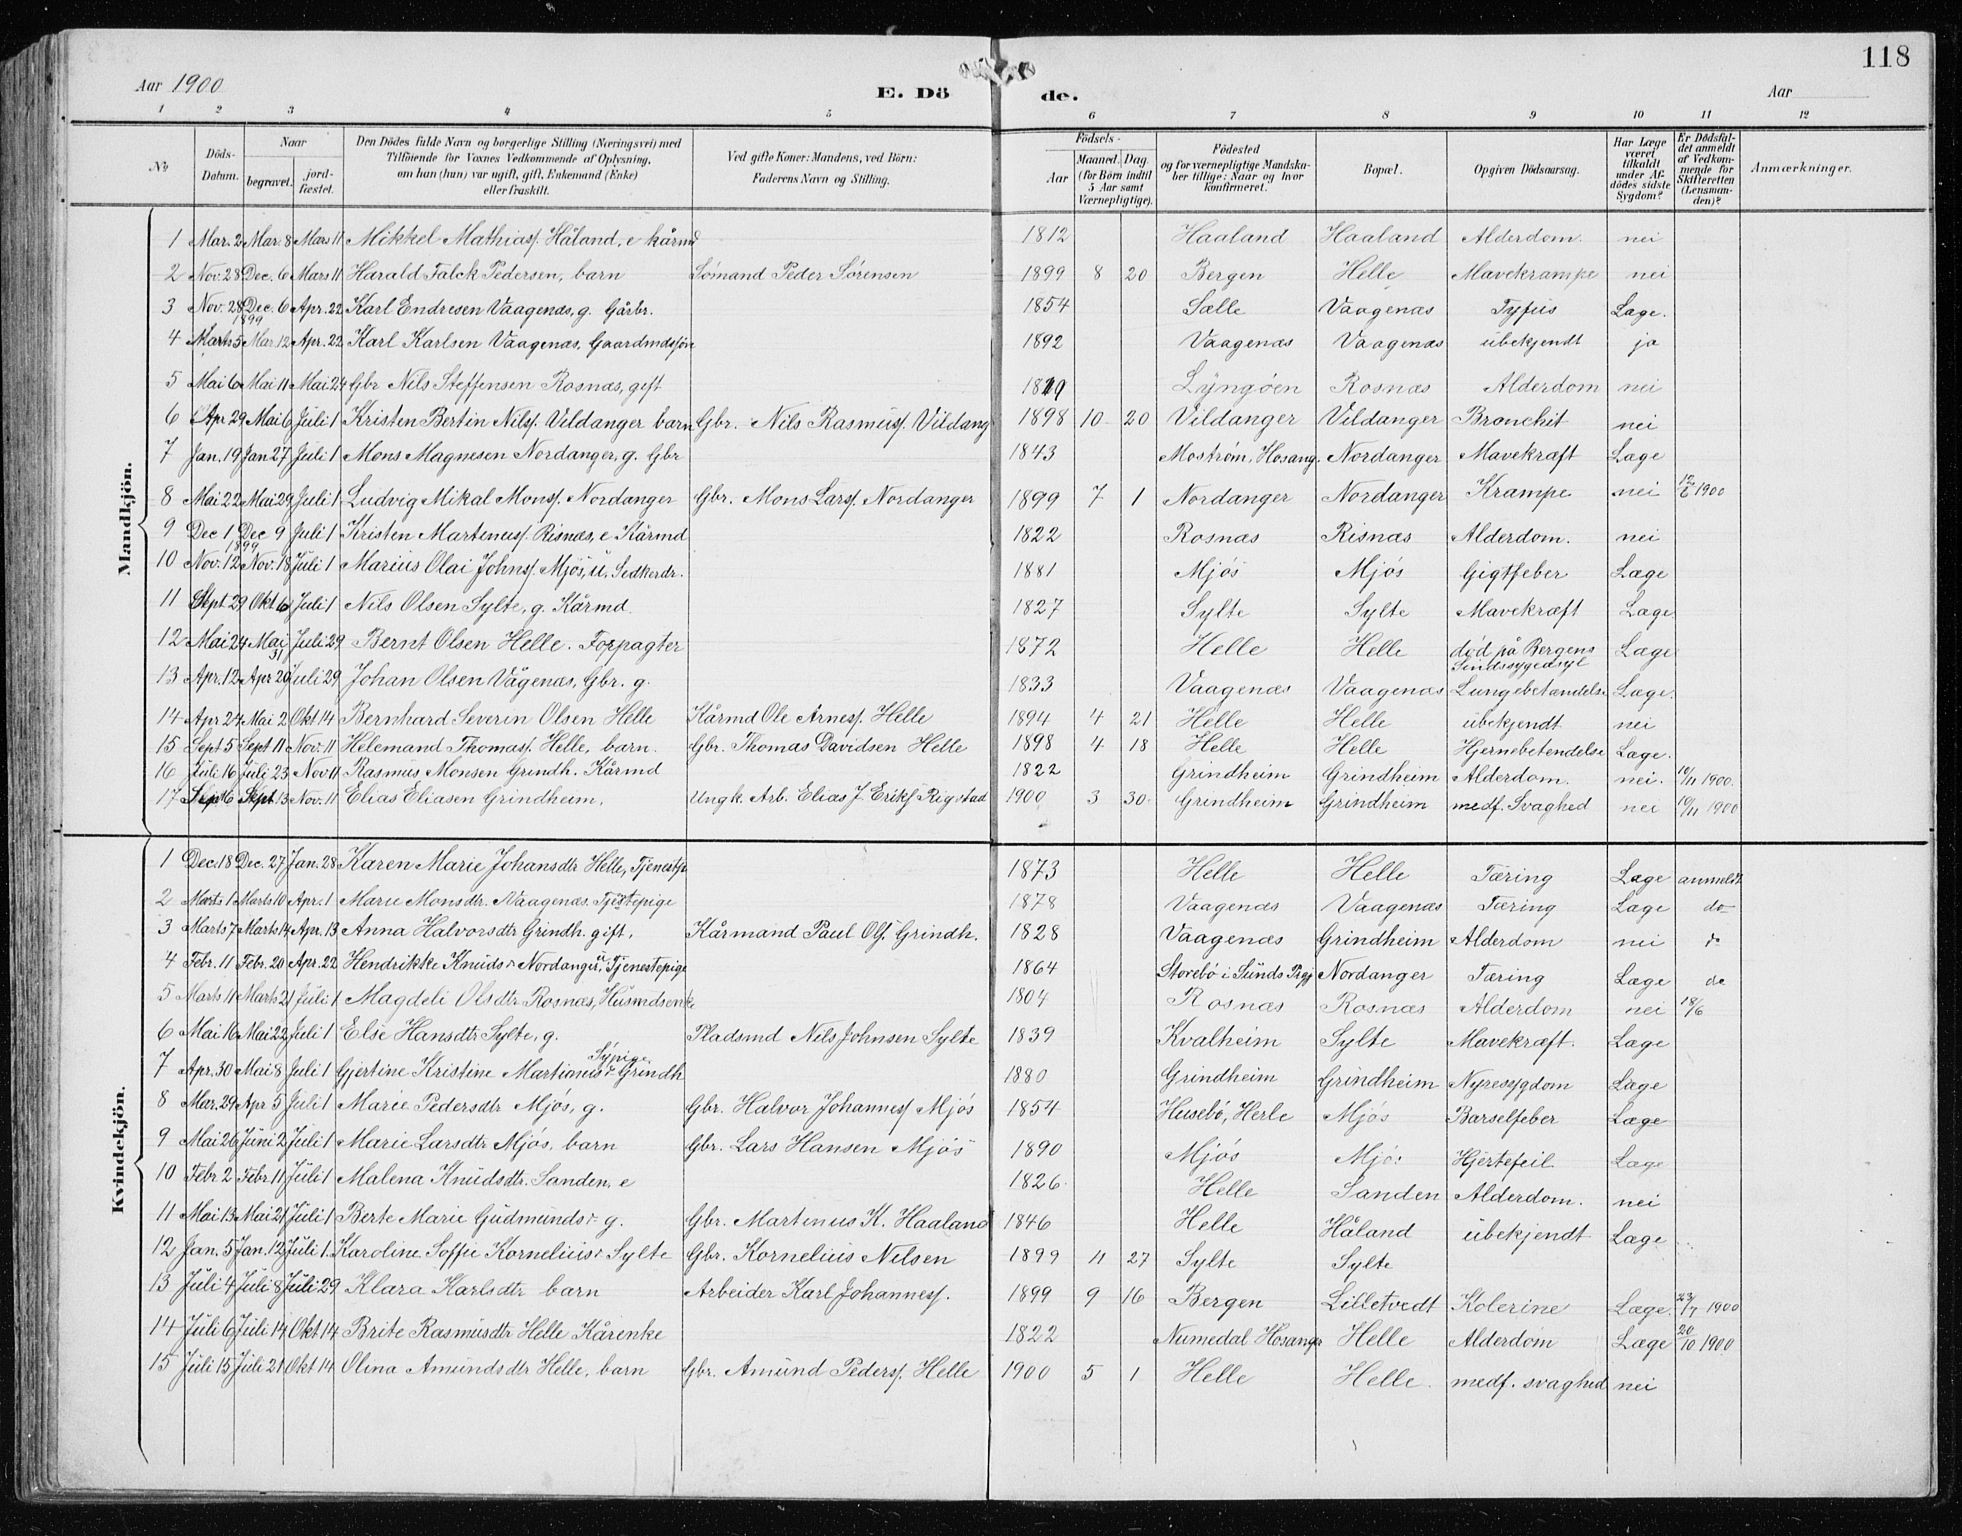 118
Aar 1900
E. Dö de.
Aar
1 2 3 4 5 6 7 8 9 10 11 12
No. Döds-Datum. Naar begravet. jord-fæstet. Den Dödes fulde Navn og borgerlige Stilling (Næringsvei) med Tilföiende for Voxnes Vedkommende af Oplysning, om han (hun) var ugift, gift, Enkemand (Enke) eller fraskilt. Ved gifte Koner: Mandens, ved Börn: Faderens Navn og Stilling. Födsels- Aar Maaned. Dag (for Börn indtil 5 Aar samt Værnepligtige). Födested og for værnepligtige Mandska-ber tillige: Naar og hvor konfirmeret. Bopæl. Opgiven Dödsaarsag. Har Læge været tilkaldt under Af-dödes sidste Sygdom? Er Dödsfal-det anmeldt af Vedkom-mende for Skifteretten (Lensman-den)? Anmærkninger.
Mandkjön.
1 Mar. 2 Mar 8 Mars 11 Mikkel Mathiasf. Håland, e kårmd 1812 Haaland Haaland Alderdom. nei
2 Nov. 28 Dec. 6 Mars 11 Harald Falck Pedersen, barn Sömand Peder Sörensen 1899 8 20 Bergen Helle Mavekrampe nei
3 Nov. 28 Dec. 6 1899 Apr. 22 Karl Endresen Vaagenæs, g. Gårbr. 1854 Sælle Vaagenæs Tyfus Læge.
4 Marts 5 Mar. 12 Apr. 22 Karl Karlsen Vaagenæs, Gaardmdssön 1892 Vaagenæs Vaagenæs ubekjendt ja
5 Mai 6 Mai 11 Mai 24 Gbr Nils Steffensen Rosnæs, gift 1819 Lyngöen Rosnæs Alderdom nei
6 Apr 29 Mai 6 Juli 1 Kristen Bertin Nilsf. Vildanger barn Gbr. Nils Rasmusf. Vildang 1898 10 20 Vildanger Vildanger Bronchit nei
7 Jan. 19 Jan 27 Juli 1 Mons Magnesen Nordanger, g. Gbr 1843 Moström, Hosang. Nordanger Mavekræft Læge
8 Mai 22 Mai 29 Juli 1 Ludvig Mikal Monsf. Nordanger Gbr. Mons Larsf. Nordanger 1899 7 1 Nordanger Nordanger Krampe nei 12/6 1900
9 Dec 1 Dec 9 1899 Juli 1 Kristen Martenusf. Risnæs, e Kårmd 1822 Rosnæs Risnæs Alderdom. nei
10 Nov. 12 Nov. 18 Juli 1 Marius Olai Johnsf. Mjös, u. Sedkerdr. 1881 Mjös Mjös Gigtfeber Læge
11 Sept 29 Okt 6 Juli 1 Nils Olsen Sylte, g. Kårmd. 1827 Sylte Sylte Mavekræft Læge
12 Mai 24 Mai 31 Juli 29 Bernt Olsen Helle. Forpagter 1872 Helle Helle död på Bergens Sindssygeasyl Læge
13 Apr. 12 Apr 20 Juli 29 Johan Olsen Vågenæs, Gbr. g. 1833 Vaagenæs Vaagenæs Lungebetændelse Læge.
14 Apr 24 Mai 2 Okt 14 Bernhard Severin Olsen Helle Kårmd Ole Arnesf. Helle 1894 4 21 Helle Helle ubekjendt nei
15 Sept 5 Sept 11 Nov. 11 Helemand Thomasf. Helle, barn. Gbr. Thomas Davidsen Helle 1898 4 18 Helle Helle Hjernebetendelse Læge.
16 Juli 16 Juli 23 Nov 11 Rasmus Monsen Grindh. Kårmd 1822 Grindheim Grindheim Alderdom. nei. 10/11 1900.
17 Sept 6 Sept 13 Nov. 11 Elias Eliasen Grindheim, Ungk. Arb. Elias J. Eriksf Rigstad 1900 3 30 Grindheim Grindheim medf. Svaghed nei 10/11 1900
Kvindekjön.
1 Dec. 18 Dec. 27 Jan. 28 Karen Marie Johansdtr Helle, Tjenestp 1873 Helle Helle Tæring Læge anmeldt
2 Marts 1 Marts 10 Apr. 1 Marie Monsdtr. Vaagenæs. Tjestepige 1878 Vaagenæs Vaagenæs Tæring Læge do
3 Marts 7 Marts 14 Apr. 13 Anna Halvorsdtr Grindh. gift. Kårmand Paul Olf. Grindh. 1828 Vaagenæs Grindheim Alderdom nei do
4 Febr. 11 Febr. 20 Apr. 22 Hendrikke Knudsdr Nordanger u. Tjenestepige 1864 Storebö i Sunds Prgj Nordanger Tæring Læge do
5 Marts 11 Marts 21 Juli 1 Magdeli Olsdtr Rosnæs, Husmdsenke 1804 Rosnæs Rosnæs Alderdom nei 18/6
6 Mai 16 Mai 22 Juli 1 Else Hansdtr Sylte, g. Pladsmd Nils Johnsen Sylte 1839 Kvalheim Sylte Mavekræft. Læge
7 Apr. 30 Mai 8 Juli 1 Gjertine Kristine Martinusdr Grindh Sypige 1880 Grindheim Grindheim Nyresygdom Læge
8 Mar. 29 Apr 5 Juli 1 Marie Pedersdtr Mjös, g. Gbr. Halvor Johannesf Mjös 1854 Husebö, Herle Mjös Barselfeber Læge
9 Mai 26 Juni 2 Juli 1 Marie Larsdtr Mjös, barn Gbr. Lars Hansen Mjös 1890 Mjös Mjös Hjertefeil Læge
10 Febr 2 Febr 11 Juli 1 Malena Knudsdtr. Sanden, e 1826. Helle Sanden Alderdom. nei
11 Mai 13 Mai 21 Juli 1 Berte Marie Gudmundsdr g. Gbr. Martenus K. Haaland 1846 Helle Håland ubekjendt Læge
12 Jan. 5 Jan. 12 Juli 1. Karoline Soffie Korneliusdr Sylte Gbr. Kornelius Nilsen 1899 11 27 Sylte Sylte
13 Juli 4 Juli 8 Juli 29 Klara Karlsdtr barn Arbeider Karl Johannesf. 1899 9 16 Bergen Lilletvedt Kolerine Læge. 23/7 1900
14 Juli 6 Juli 14 Okt 14 Brite Rasmusdtr Helle Kårenke 1822 Numedal Hosanger Helle Alderdom Læge 20/10 1900
15 Juli 15 Juli 21 Okt 14 Olina Amundsdtr Helle, barn Gbr. Amund Pedersf. Helle 1900 5 1 Helle Helle. medf. svaghed nei